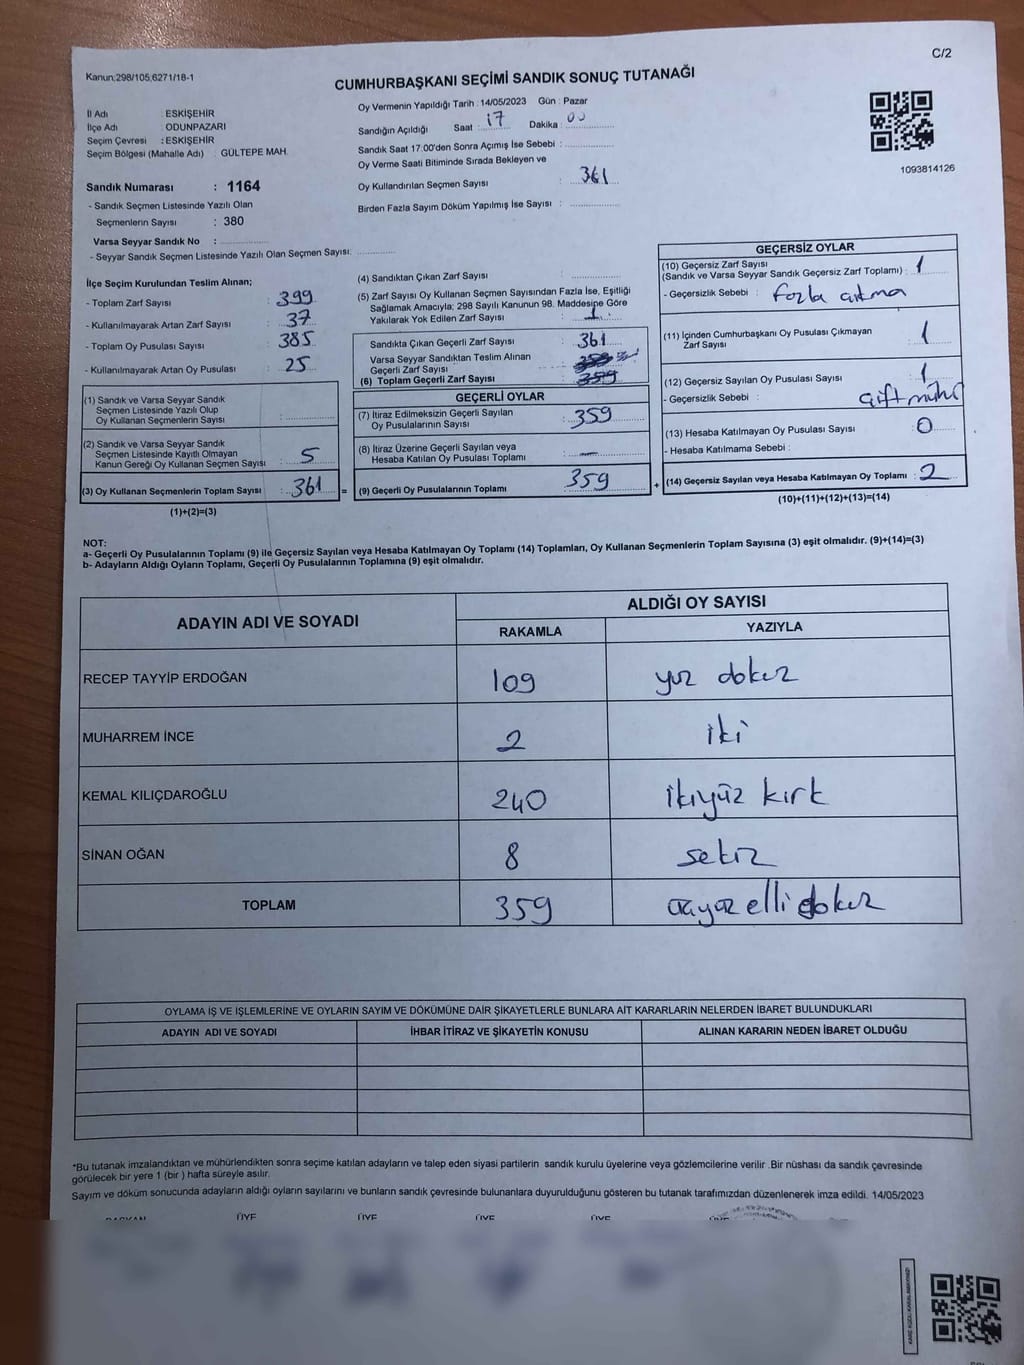 C/2
Kanun:298/105,6271/18-1
CUMHURBAŞKANI SEÇİMİ SANDIK SONUÇ TUTANAĞI
İl Adı : ESKİŞEHİR
İlçe Adı : ODUNPAZARI
Seçim Çevresi : ESKİŞEHİR
Seçim Bölgesi (Mahalle Adı) : GÜLTEPE MAH.
Oy Vermenin Yapıldığı Tarih : 14/05/2023 Gün : Pazar
Sandığın Açıldığı Saat : 17 Dakika : 00
Sandık Saat 17:00'den Sonra Açımış İse Sebebi :
Oy Verme Saati Bitiminde Sırada Bekleyen ve
Oy Kullandırılan Seçmen Sayısı : 361
Birden Fazla Sayım Döküm Yapılmış İse Sayısı :
1093814126
Sandık Numarası : 1164
- Sandık Seçmen Listesinde Yazılı Olan
Seçmenlerin Sayısı : 380
Varsa Seyyar Sandık No :
- Seyyar Sandık Seçmen Listesinde Yazılı Olan Seçmen Sayısı:
İlçe Seçim Kurulundan Teslim Alınan;
- Toplam Zarf Sayısı : 399
- Kullanılmayarak Artan Zarf Sayısı : 37
- Toplam Oy Pusulası Sayısı : 385
- Kullanılmayarak Artan Oy Pusulası : 25
(1) Sandık ve Varsa Seyyar Sandık
Seçmen Listesinde Yazılı Olup
Oy Kullanan Seçmenlerin Sayısı :
(2) Sandık ve Varsa Seyyar Sandık
Seçmen Listesinde Kayıtlı Olmayan
Kanun Gereği Oy Kullanan Seçmen Sayısı : 5
(3) Oy Kullanan Seçmenlerin Toplam Sayısı : 361 =
(1)+(2)=(3)
(4) Sandıktan Çıkan Zarf Sayısı :
(5) Zarf Sayısı Oy Kullanan Seçmen Sayısından Fazla İse, Eşitliği
Sağlamak Amacıyla; 298 Sayılı Kanunun 98. Maddesine Göre
Yakılarak Yok Edilen Zarf Sayısı : 1
Sandıkta Çıkan Geçerli Zarf Sayısı : 361
Varsa Seyyar Sandıktan Teslim Alınan
Geçerli Zarf Sayısı
(6) Toplam Geçerli Zarf Sayısı : 359
GEÇERLİ OYLAR
(7) İtiraz Edilmeksizin Geçerli Sayılan
Oy Pusulalarının Sayısı : 359
(8) İtiraz Üzerine Geçerli Sayılan veya
Hesaba Katılan Oy Pusulası Toplamı : —
(9) Geçerli Oy Pusulalarının Toplamı : 359 +
GEÇERSİZ OYLAR
(10) Geçersiz Zarf Sayısı
(Sandık ve Varsa Seyyar Sandık Geçersiz Zarf Toplamı) : 1
- Geçersizlik Sebebi : fazla çıkma
(11) İçinden Cumhurbaşkanı Oy Pusulası Çıkmayan
Zarf Sayısı : 1
(12) Geçersiz Sayılan Oy Pusulası Sayısı : 1
- Geçersizlik Sebebi : çift mühür
(13) Hesaba Katılmayan Oy Pusulası Sayısı : 0
- Hesaba Katılmama Sebebi :
(14) Geçersiz Sayılan veya Hesaba Katılmayan Oy Toplamı : 2
(10)+(11)+(12)+(13)=(14)
NOT:
a- Geçerli Oy Pusulalarının Toplamı (9) ile Geçersiz Sayılan veya Hesaba Katılmayan Oy Toplamı (14) Toplamları, Oy Kullanan Seçmenlerin Toplam Sayısına (3) eşit olmalıdır. (9)+(14)=(3)
b- Adayların Aldığı Oyların Toplamı, Geçerli Oy Pusulalarının Toplamına (9) eşit olmalıdır.
ADAYIN ADI VE SOYADI ALDIĞI OY SAYISI
RAKAMLA YAZIYLA
RECEP TAYYİP ERDOĞAN 109 yüz dokuz
MUHARREM İNCE 2 iki
KEMAL KILIÇDAROĞLU 240 ikiyüz kırk
SİNAN OĞAN 8 sekiz
TOPLAM 359 üçyüz elli dokuz
OYLAMA İŞ VE İŞLEMLERİNE VE OYLARIN SAYIM VE DÖKÜMÜNE DAİR ŞİKAYETLERLE BUNLARA AİT KARARLARIN NELERDEN İBARET BULUNDUKLARI
ADAYIN ADI VE SOYADI İHBAR İTİRAZ VE ŞİKAYETİN KONUSU ALINAN KARARIN NEDEN İBARET OLDUĞU
*Bu tutanak imzalandıktan ve mühürlendikten sonra seçime katılan adayların ve talep eden siyasi partilerin sandık kurulu üyelerine veya gözlemcilerine verilir .Bir nüshası da sandık çevresinde
görülecek bir yere 1 (bir ) hafta süreyle asılır.
Sayım ve döküm sonucunda adayların aldığı oyların sayılarını ve bunların sandık çevresinde bulunanlara duyurulduğunu gösteren bu tutanak tarafımızdan düzenlenerek imza edildi. 14/05/2023
BAŞKAN ÜYE ÜYE ÜYE ÜYE ÜYE